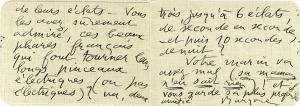 de leurs éclats — Vous
les avez sûrement
admiré, ces beaux
phares français
qui font tourner les
longs pinceaux
électriques (ou pas
électriques)? un, deux
très, jusqu'à 6 éclats,
de seconde en seconde
et puis 10 secondes
de nuit?
Votre mari va
assez mal, sa maman
n'en sait rien, et
vous garde sa plus
amitié Marjorie